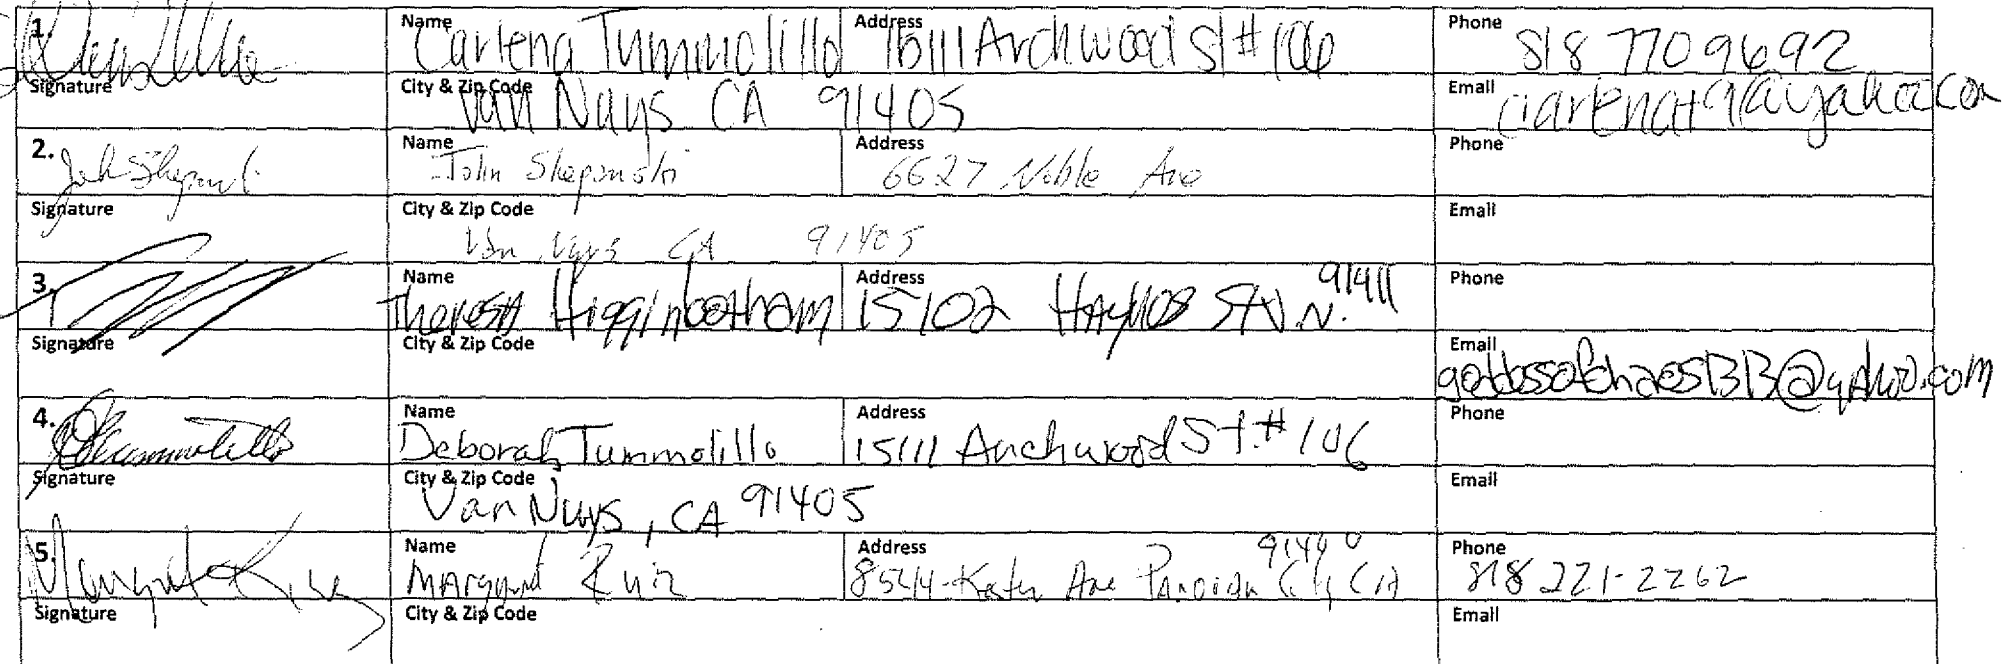 1. Name Carlena Tummolillo Address 15111 Archwood St #106 Phone 818 770 9692
Signature City & Zip Code Van Nuys CA 91405 Email carlenat91@yahoo.com
2. Name John Shepanski Address 6627 Noble Ave Phone
Signature City & Zip Code Van Nuys CA 91405 Email
3. Name Theresa Higginbotham Address 15102 Haynes St V.N. 91411 Phone
Signature City & Zip Code Email goddessofchaos1313@yahoo.com
4. Name Deborah Tummolillo Address 15111 Archwood St. #106 Phone
Signature City & Zip Code Van Nuys, CA 91405 Email
5. Name Margaret Ruiz Address 8544 Ave Panorama City CA Phone 818 221-2262
Signature City & Zip Code Email